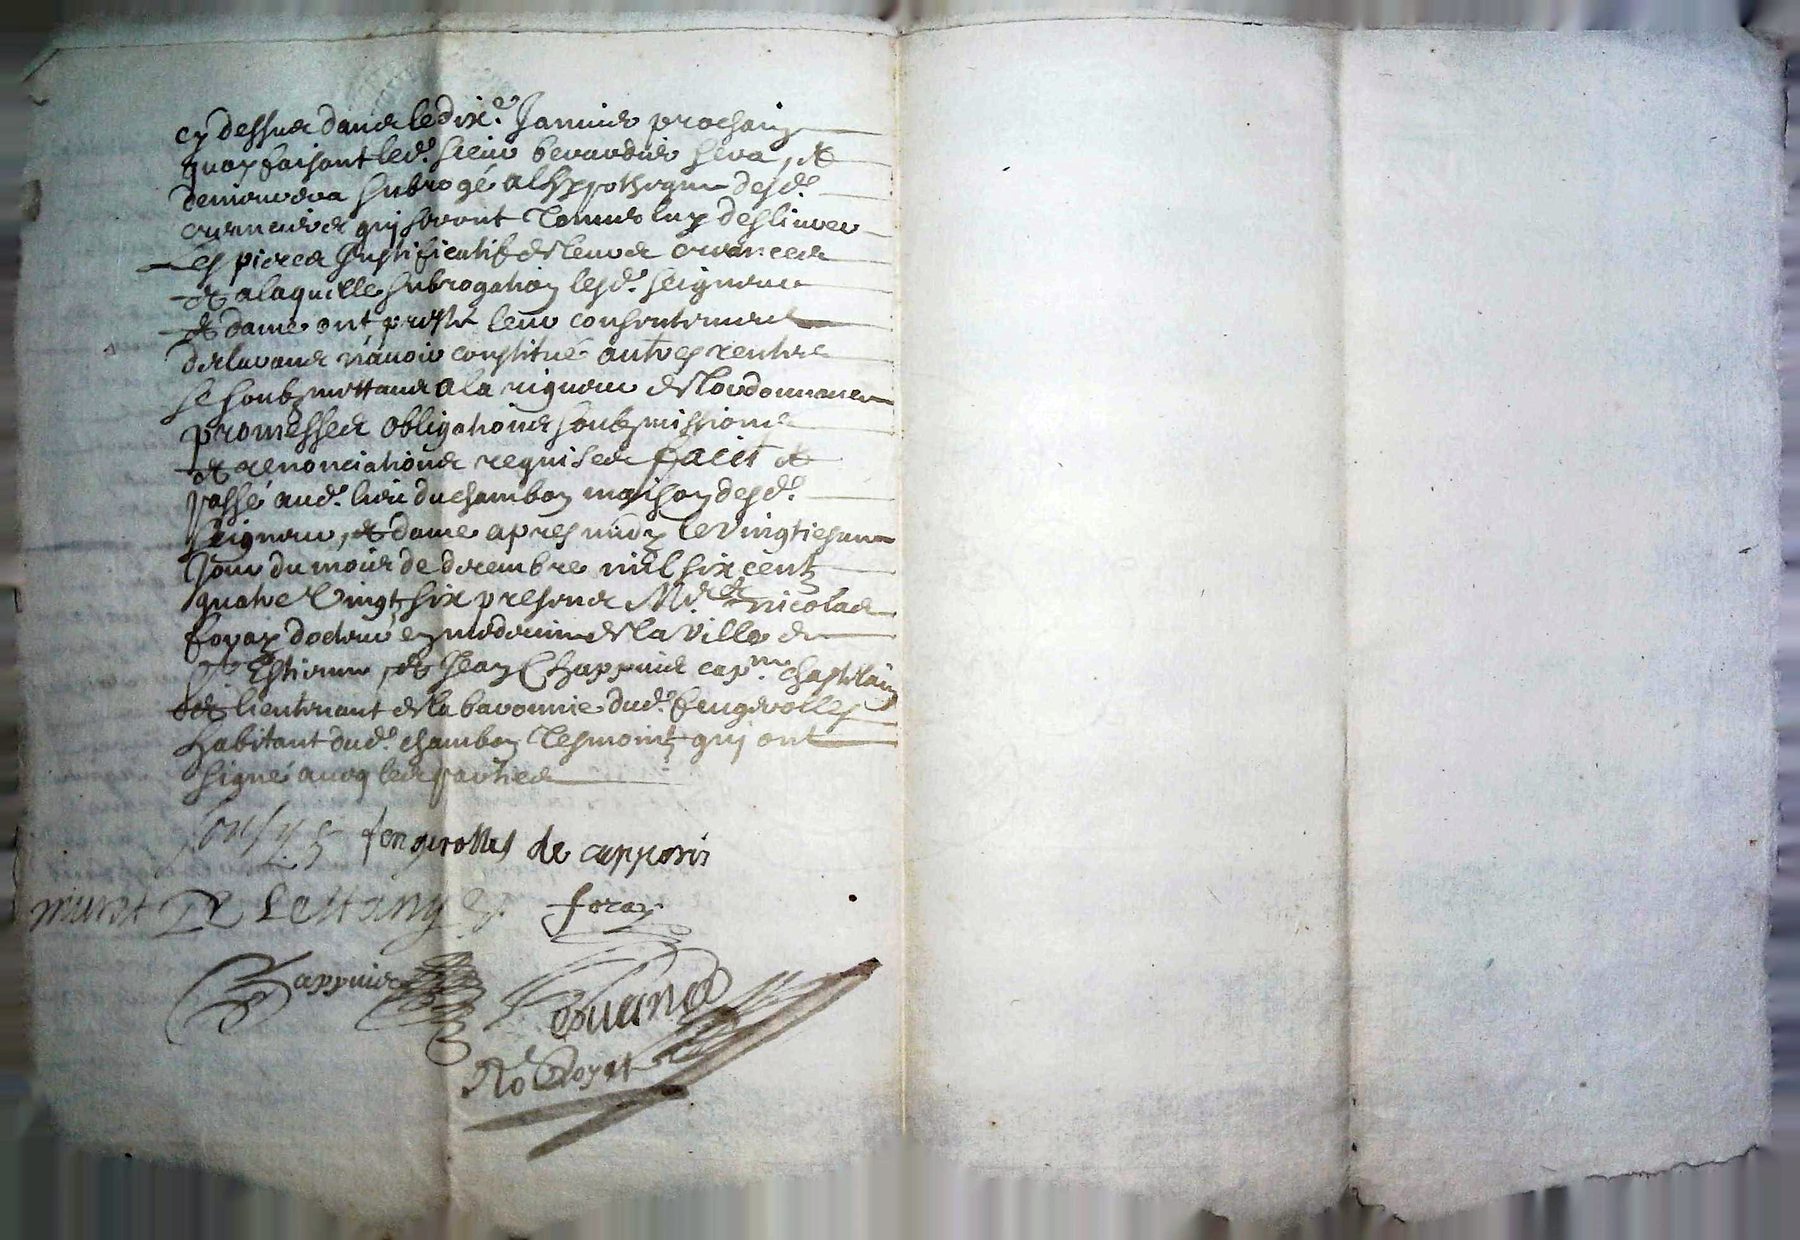 cy dessus dans le dixe. Janvier prochain
quoy faisant led. sieur berardier sera, &
demeurera subrogé a lhypotheque desd.
creanciers quy seront tenus luy deslivrer
les pieces justificatif de leurs creances
& a laquelle subrogation lesd. seigneur
& dame ont presté leur consentement
declarans n'avoir constitué autres rentes
se soubzmettans a la rigueur de lordonnance
promesses obligations soubzmissions
& renonciations requises faict &
passé aud. lieu du chambon maison desd.
seigneur, & dame apres midy le vingtiesme
jour du mois de decembre mil six centz
quatre vingt six presens Mr. nicolas
foray docteur en medecine de la ville de
St Estienne, & Jean Chappuis capne. chastelain
& lieutenant de la baronnie dud. feugerolles
habitant dud. chambon tesmointz quy ont
signé avecq les parties
feugerolles de capponi
murat De Lestang
foray
Chappuis